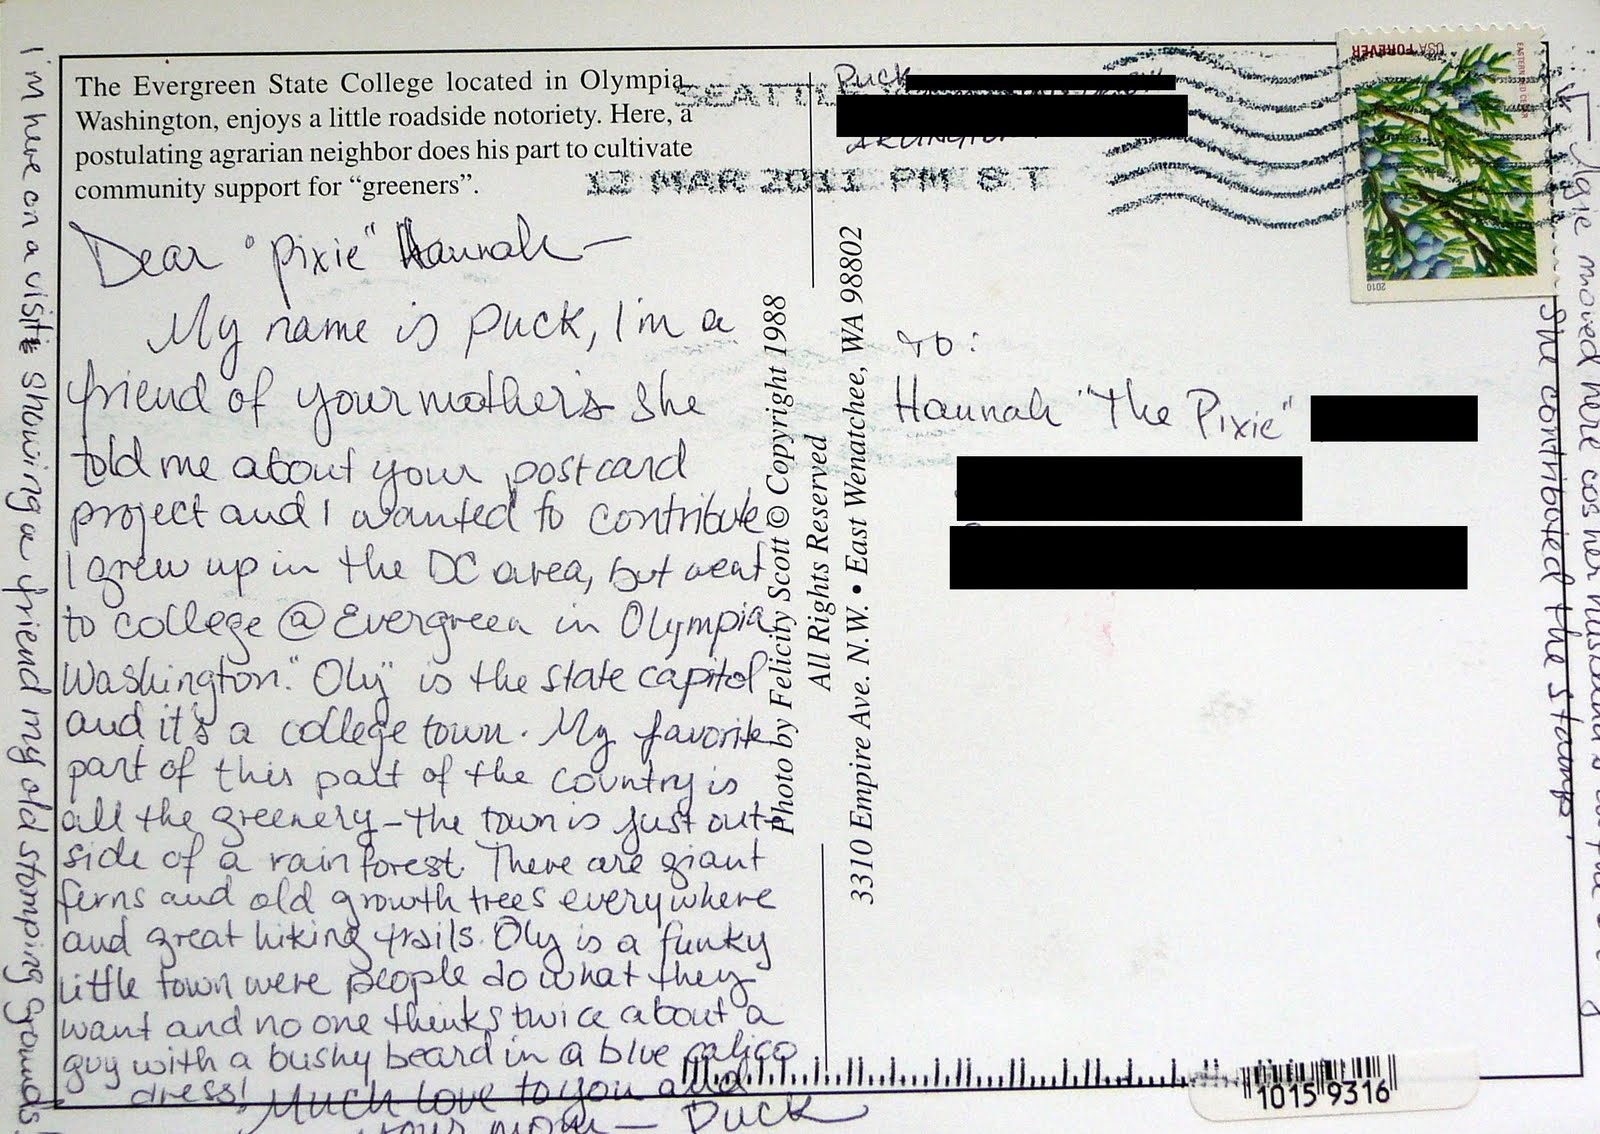 The Evergreen State College located in Olympia,
Washington, enjoys a little roadside notoriety. Here, a
postulating agrarian neighbor does his part to cultivate
community support for "greeners".
SEATTLE
12 MAR 2011 PM 8 T
Puck
ARLINGTON
USA FOREVER
EASTERN RED CEDAR
2010
Dear "Pixie" Hannah—
My name is Puck, I'm a
friend of your mother's she
told me about your postcard
project and I wanted to contribute
I grew up in the DC area, but went
to college @ Evergreen in Olympia
Washington. "Oly" is the state capitol
and it's a college town. My favorite
part of this part of the country is
all the greenery—the town is just out-
side of a rain forest. There are giant
ferns and old growth trees everywhere
and great hiking trails. Oly is a funky
little town were people do what they
want and no one thinks twice about a
guy with a bushy beard in a blue calico
dress! Much love to you and
your mom— Puck
I'm here on a visit showing a friend my old stomping grounds!
Photo by Felicity Scott © Copyright 1988
All Rights Reserved
3310 Empire Ave. N.W. • East Wenatchee, WA 98802
To:
Hannah "The Pixie"
moved here cos her husband's in the
She contributed the stamp
1015 9316